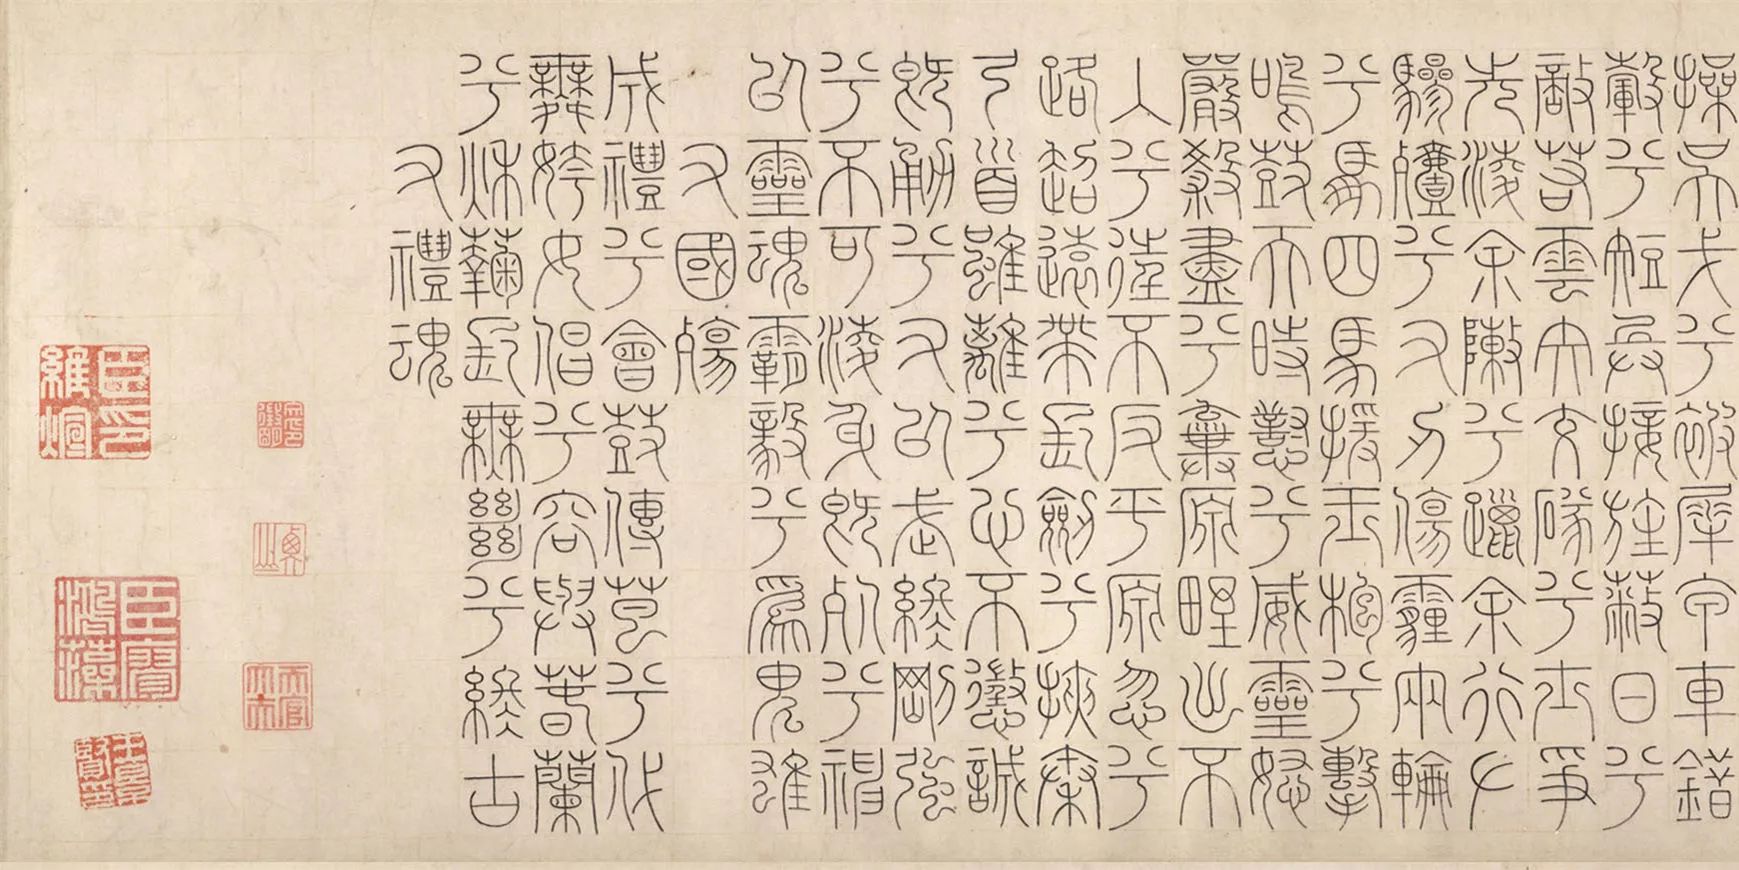 操吳戈兮被犀甲車錯
轂兮短兵接旌蔽日兮
敵若雲矢交隊兮士爭
先淩余陳兮躐余行左
驂殪兮右刃傷霾兩輪
兮馬四馬援玉枹兮擊
鳴鼓天時懟兮威靈怒
嚴殺盡兮棄原野出不
入兮往不反平原忽兮
路超遠帶長劍兮挾秦
弓首雖離兮心不懲誠
既勇兮又以武終剛強
兮不可淩身既死兮神
以靈魂霸毅兮爲鬼雄
右國殤
成禮兮會鼓傳芭兮代
舞姱女倡兮容與春蘭
兮秋蘜長無絕兮終古
右禮魂